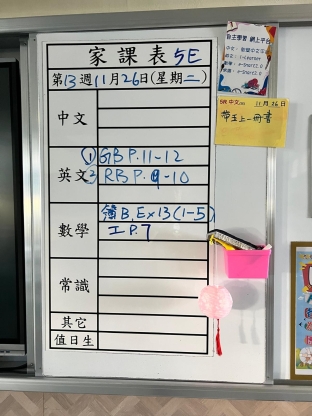 家課表 5E
第13週11月26日(星期二)
中文
① GB P.11-12
英文 ② RB P.9-10
簿 B. Ex 13 (1-5)
數學 工 P.7
常識
其它
值日生
自主學習 網上平台
5E 中文 11月26日
帶五上一冊書